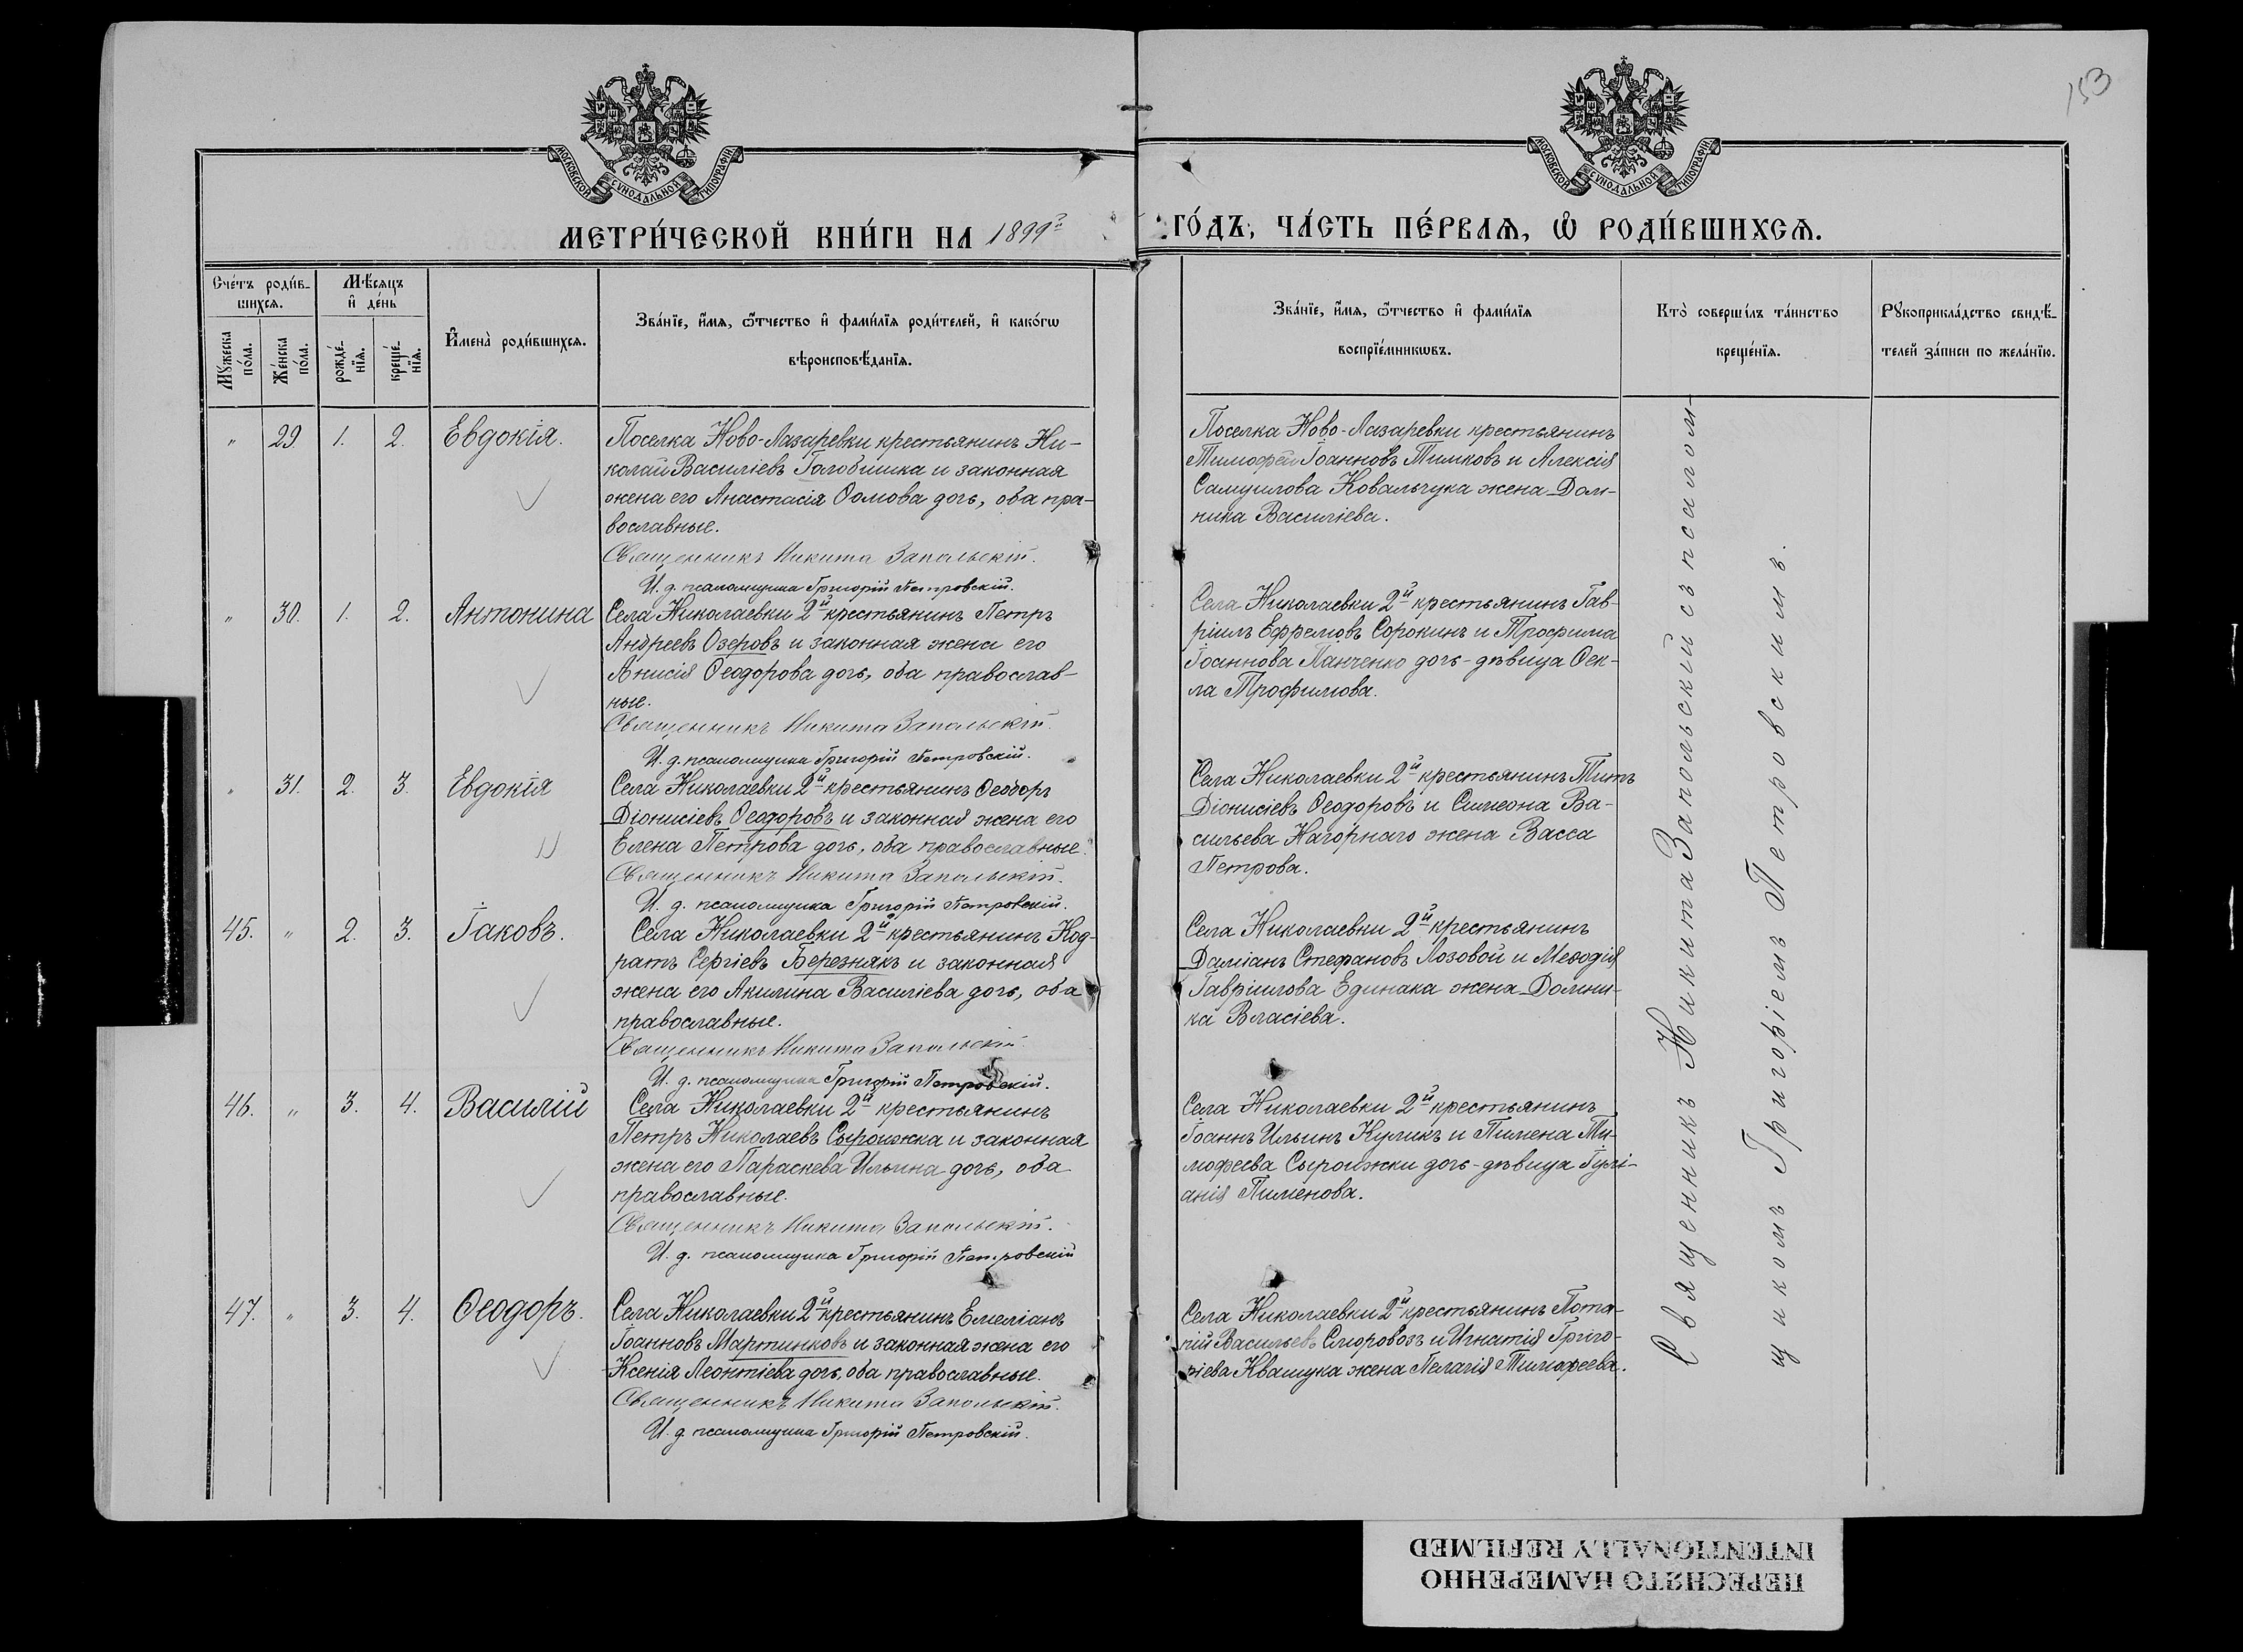 153
МОСКОВСКОЙ СѴНОДАЛЬНОЙ ТИПОГРАФІИ
МОСКОВСКОЙ СѴНОДАЛЬНОЙ ТИПОГРАФІИ
МЕТРИ́ЧЕСКОЙ КНИ́ГИ НА 1899й
ГО́ДЪ, ЧА́СТЬ ПЕ́РВАѦ, Ѡ РОДИ́ВШИХСѦ.
Сче́тъ роди́в-
шихсѧ.
Мꙋ́жеска по́ла.
Же́нска по́ла.
Мѣ́сѧцъ
и҆ де́нь
рожде́-
нїѧ.
креще́-
нїѧ.
И҆мена̀ роди́вшихсѧ.
Зва́нїе, и҆́мѧ, ѻ҆́тчество и҆ фами́лїѧ роди́телей, и҆ како́гѡ
вѣроисповѣ́данїѧ.
Зва́нїе, и҆́мѧ, ѻ҆́тчество и҆ фами́лїѧ
воспрїе́мникѡвъ.
Кто̀ соверши́лъ та́инство
креще́нїѧ.
Рꙋкоприкла́дство свидѣ́-
телей за́писи по жела́нїю.
" 29 1. 2. Евдокія.
Поселка Ново-Лазаревки крестьянинъ Ни-
колай Василіевъ Голобишка и законная
жена его Анастасія Ѳомова дочь, оба пра-
вославные.
Священникъ Никита Запольскій.
И. д. псаломщика Григорій Петровскій.
Поселка Ново-Лазаревки крестьянинъ
Тимофей Іоанновъ Тимковъ и Алексія
Самуилова Ковальчука жена Дом-
ника Василіева.
" 30. 1. 2. Антонина
Села Николаевки 2й крестьянинъ Петръ
Андреевъ Озеровъ и законная жена его
Анисія Ѳеодорова дочь, оба православ-
ные.
Священникъ Никита Запольскій.
И. д. псаломщика Григорій Петровскій.
Села Николаевки 2й крестьянинъ Гав-
ріилъ Ефремовъ Сорокинъ и Трофима
Іоаннова Панченко дочь-дѣвица Ѳек-
ла Трофимова.
" 31. 2. 3. Евдокія
Села Николаевки 2й крестьянинъ Ѳеодоръ
Діонисіевъ Ѳеодоровъ и законная жена его
Елена Петрова дочь, оба православные.
Священникъ Никита Запольскій.
И. д. псаломщика Григорій Петровскій.
Села Николаевки 2й крестьянинъ Титъ
Діонисіевъ Ѳеодоровъ и Симеона Ва-
сильева Нагорнаго жена Васса
Петрова.
45. " 2. 3. Іаковъ.
Села Николаевки 2й крестьянинъ Код-
ратъ Сергіевъ Березнякъ и законная
жена его Акилина Василіева дочь, оба
православные.
Священникъ Никита Запольскій.
И. д. псаломщика Григорій Петровскій.
Села Николаевки 2й крестьянинъ
Даміанъ Стефановъ Лозовой и Меѳодія
Гавріилова Единака жена Домни-
ка Власіева.
46. " 3. 4. Василій
Села Николаевки 2й крестьянинъ
Петръ Николаевъ Сыроижка и законная
жена его Параскева Ильина дочь, оба
православные.
Священникъ Никита Запольскій.
И. д. псаломщика Григорій Петровскій
Села Николаевки 2й крестьянинъ
Іоаннъ Ильинъ Куликъ и Пимена Ти-
мофеева Сыроижки дочь-дѣвица Іулі-
анія Пименова.
47. " 3. 4. Ѳеодоръ.
Села Николаевки 2й крестьянинъ Емеліанъ
Іоанновъ Мартинковъ и законная жена его
Ксенія Леонтіева дочь, оба православные.
Священникъ Никита Запольскій.
И. д. псаломщика Григорій Петровскій.
Села Николаевки 2й крестьянинъ Пота-
пій Васильевъ Сморовозъ и Игнатія Григо-
ріева Квашука жена Пелагія Тимофеева.
Священникъ Никита Запольскій съ псалом-
щикомъ Григоріемъ Петровскимъ.
ПЕРЕСНЯТО НАМЕРЕННО
INTENTIONALLY REFILMED